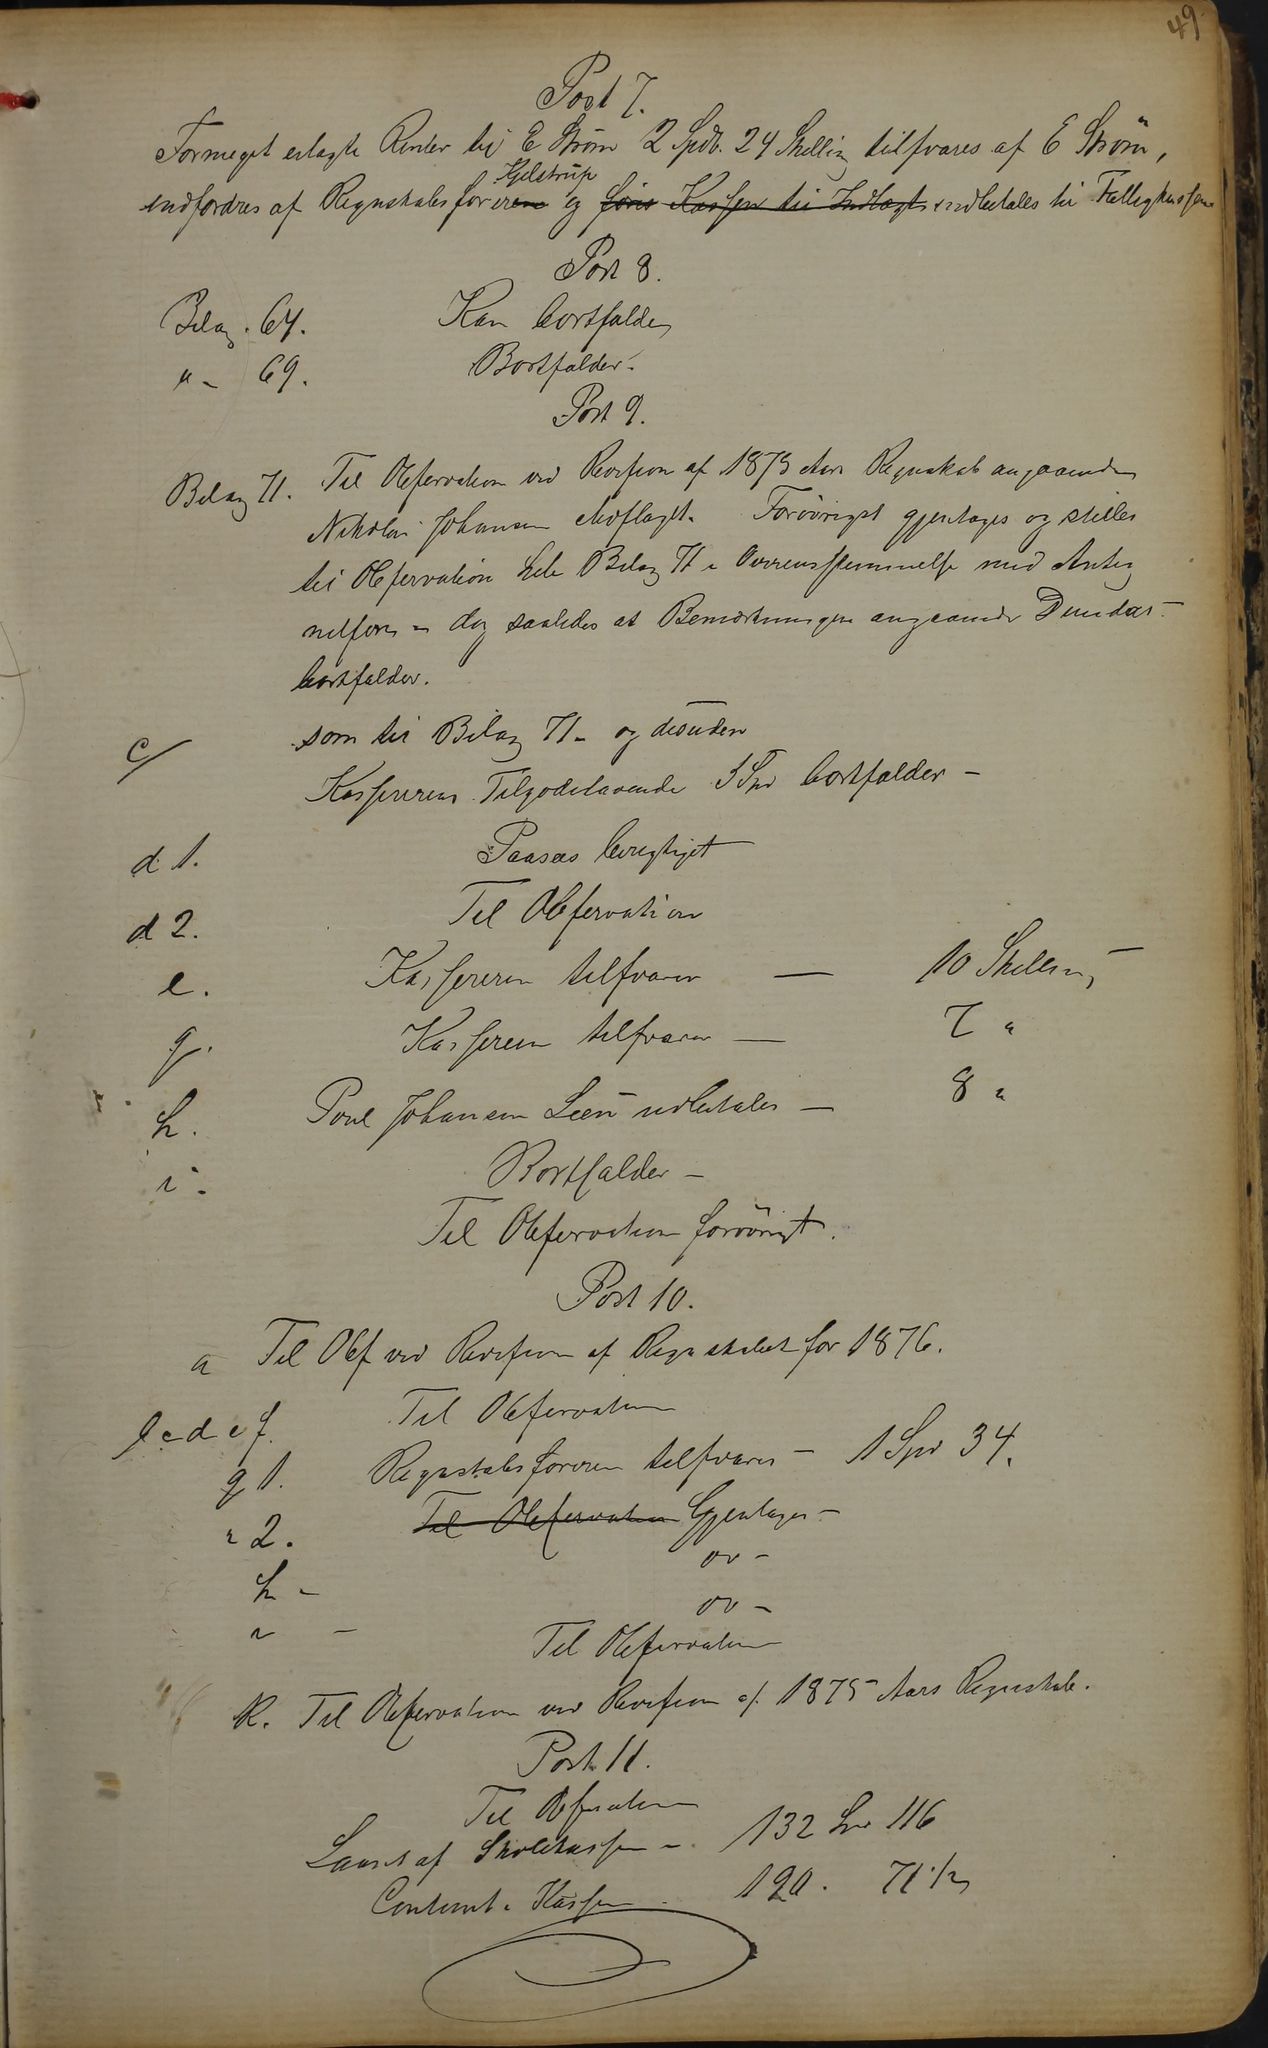 49
Post 7.
Formeget erlagte Renter til E Strøm 2 Spd. 24 Skilling tilsvares af E Strøm,
Kjelstrup
indfordres af Regnskabsføreren og føres Kassen til Indtægt indbetales til Fattigkassen
Post 8.
Bilag. 64. Kan bortfalde
" - 69. Bortfalder.
Post 9.
Bilag 71. Til Observation ved Revision af 1873 Aars Regnskab angaaende
Nikolai Johansen Moflaget. Forövrigt gjentages og stilles
til Observation hele Bilag 71 i Overensstemmelse med Anteg
nelsen - dog saaledes at Bemærkningen angaaende Dundas -
bortfalder.
c/ som til Bilag 71 - og desuden
Kassererens Tilgodehavende 3 Spd bortfalder -
d 1. Paasees berigtiget
d 2. Til Observation
e. Kassereren tilsvarer — 10 Skilling -
g. Kassereren tilsvarer — 7 "
h. Poul Johansen Leen udbetales — 8 "
i. Bortfalder -
Til Observation forövrigt.
Post 10.
a Til Obs ved Revision af Regnskabet for 1876.
b c d e f. Til Observation
g 1. Regnskabsføreren tilsvarer - 1 Spd 34.
" 2. Til Observation Gjentages -
h - do -
i - do -
Til Observation
k. Til Observation ved Revision af 1875 Aars Regnskab.
Post 11.
Til Observation
Laanet af Skolekassen - 132 Spd 116
Contant i Kassen 120. 71 1/2